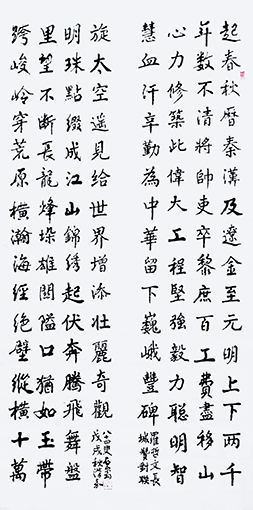 起春秋曆秦漢及遼金至元明上下兩千
年數不清將帥吏卒黎庶百工費盡移山
心力修築此偉大工程堅強毅力聰明智
慧血汗辛勤為中華留下巍峨豐碑
羅哲文長
城贊對聯
跨峻嶺穿荒原橫瀚海經絕壁縱橫十萬
里望不斷長龍烽垛雄關隘口猶如玉帶
明珠點綴成江山錦綉起伏奔騰飛舞盤
旋太空遥見給世界增添壯麗奇觀
戊戌秋